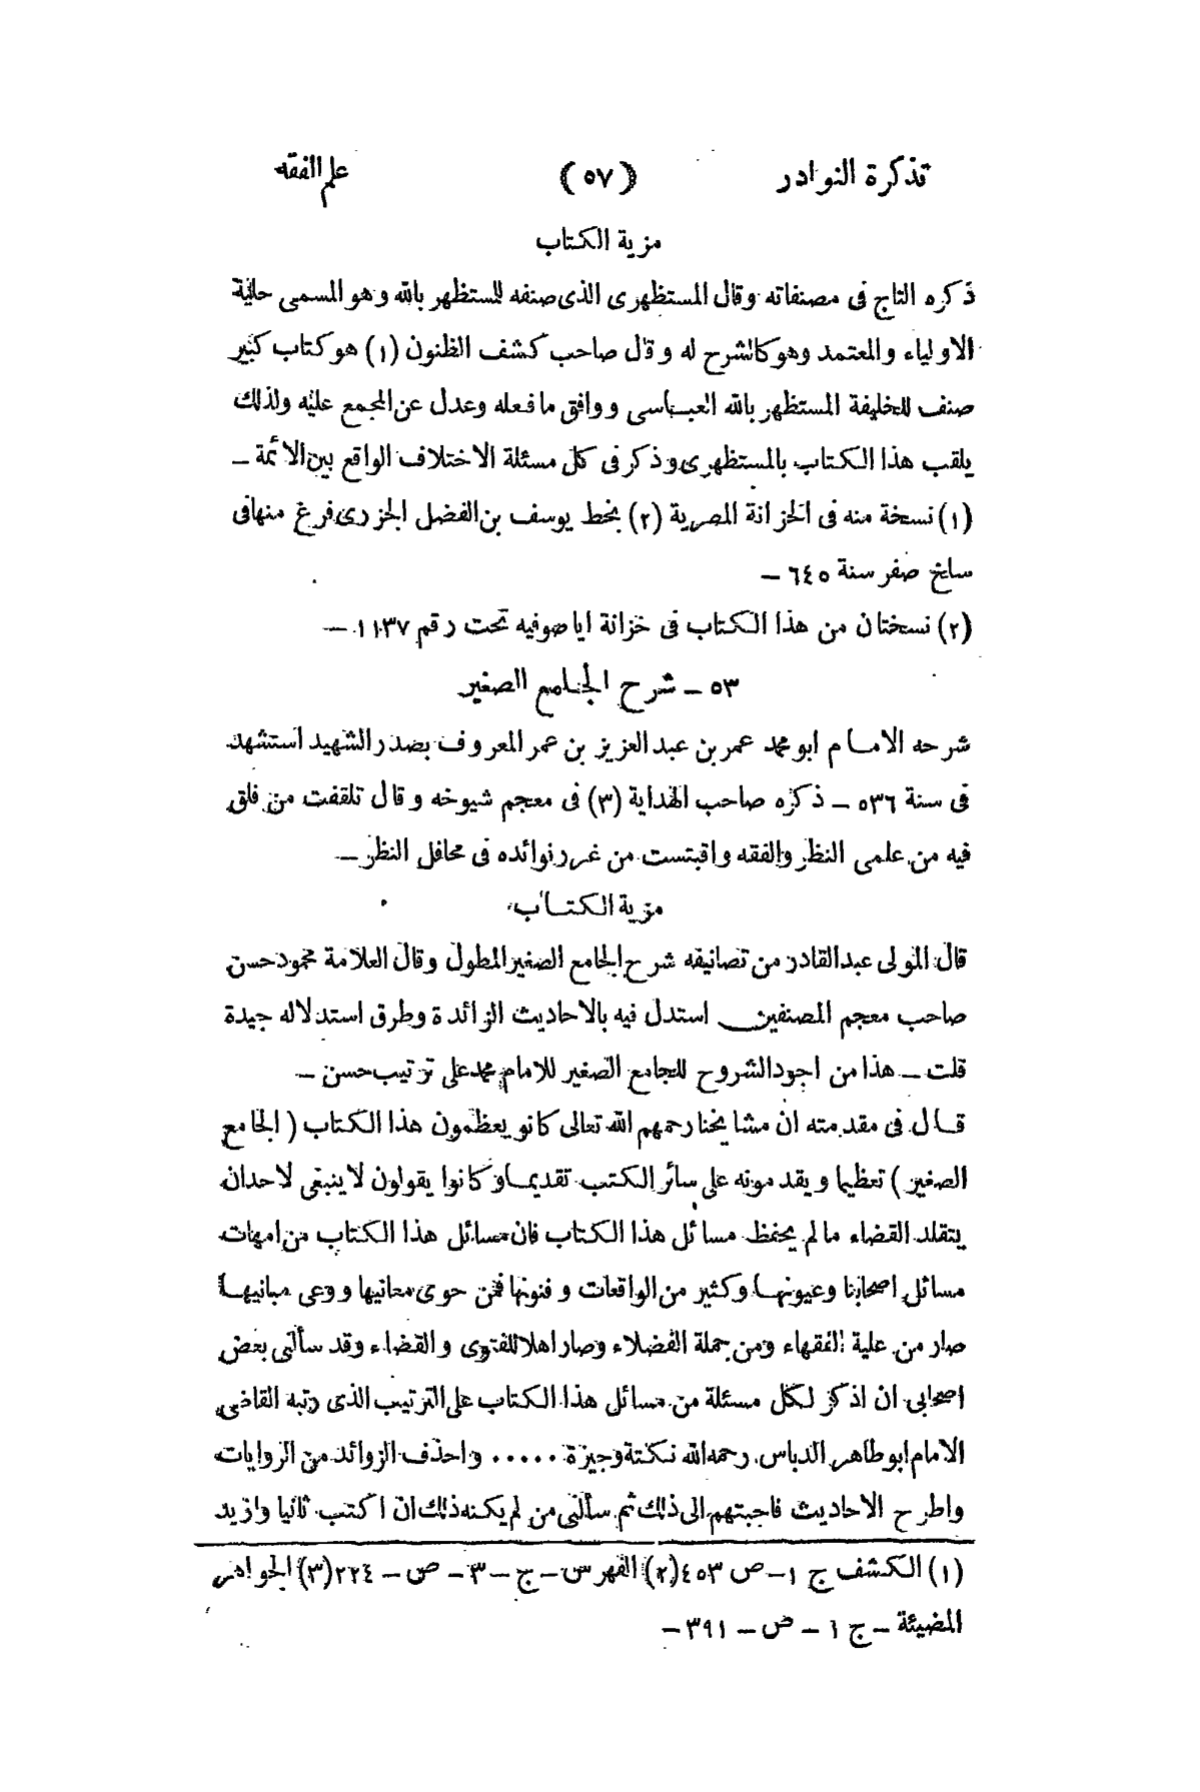 تذكرة النوادر (٥٧) علم الفقه
مزية الكتاب
ذكره التاج فى مصنفاته وقال المستظهرى الذى صنفه للمستظهر بالله وهو المسمى حلية
الاولياء والمعتمد وهو كالشرح له وقال صاحب كشف الظنون (١) هو كتاب كبير
صنف للخليفة المستظهر بالله العباسى ووافق ما فعله وعدل عن المجمع عليه ولذلك
يلقب هذا الكتاب بالمستظهرى وذكر فى كل مسئلة الاختلاف الواقع بين الائمة –
(١) نسخة منه فى الخزانة المصرية (٢) بخط يوسف بن الفضل الجزرى فرغ منها فى
سلخ صفر سنة ٦٤٥ –
(٢) نسختان من هذا الكتاب فى خزانة ايا صوفيه تحت رقم ١١٣٧ –
٥٣ – شرح الجامع الصغير
شرحه الامام ابو محمد عمر بن عبد العزيز بن عمر المعروف بصدر الشهيد استشهد
فى سنة ٥٣٦ – ذكره صاحب الهداية (٣) فى معجم شيوخه وقال تلقفت من فلق
فيه من علمى النظر والفقه واقبتست من غرر نوائده فى محافل النظر –
مزية الكتاب
قال المولى عبد القادر من تصانيفه شرح الجامع الصغير المطول وقال العلامة محمود حسن
صاحب معجم المصنفين استدل فيه بالاحاديث الزائدة وطرق استدلاله جيدة
قلت – هذا من اجود الشروح للجامع الصغير للامام محمد على ترتيب حسن –
قال فى مقدمته ان مشايخنا رحمهم الله تعالى كانو يعظمون هذا الكتاب (الجامع
الصغير) تعظيما ويقدمونه على سائر الكتب تقديما وكانوا يقولون لا ينبغى لاحد ان
يتقلد القضاء مالم يحفظ مسائل هذا الكتاب فان مسائل هذا الكتاب من امهات
مسائل اصحابنا وعيونها وكثير من الواقعات وفنونها فمن حوى معانيها ووعى مبانيها
صار من علية الفقهاء ومن جملة الفضلاء وصار اهلا للفتوى والقضاء وقد سألنى بعض
اصحابى ان اذكر لكل مسئلة من مسائل هذا الكتاب على الترتيب الذى رتبه القاضى
الامام ابو طاهر الدباس رحمه الله نكتة وجيزة ..... واحذف الزوائد من الروايات
واطرح الاحاديث فاجبتهم الى ذلك ثم سألنى من لم يكنه ذلك ان اكتب ثانيا وازيد
(١) الكشف ج ١ – ص ٤٥٣ (٢) الفهرس – ج – ٣ – ص – ٢٢٤ (٣) الجواهر
المضيئة – ج ١ – ص – ٣٩١ –